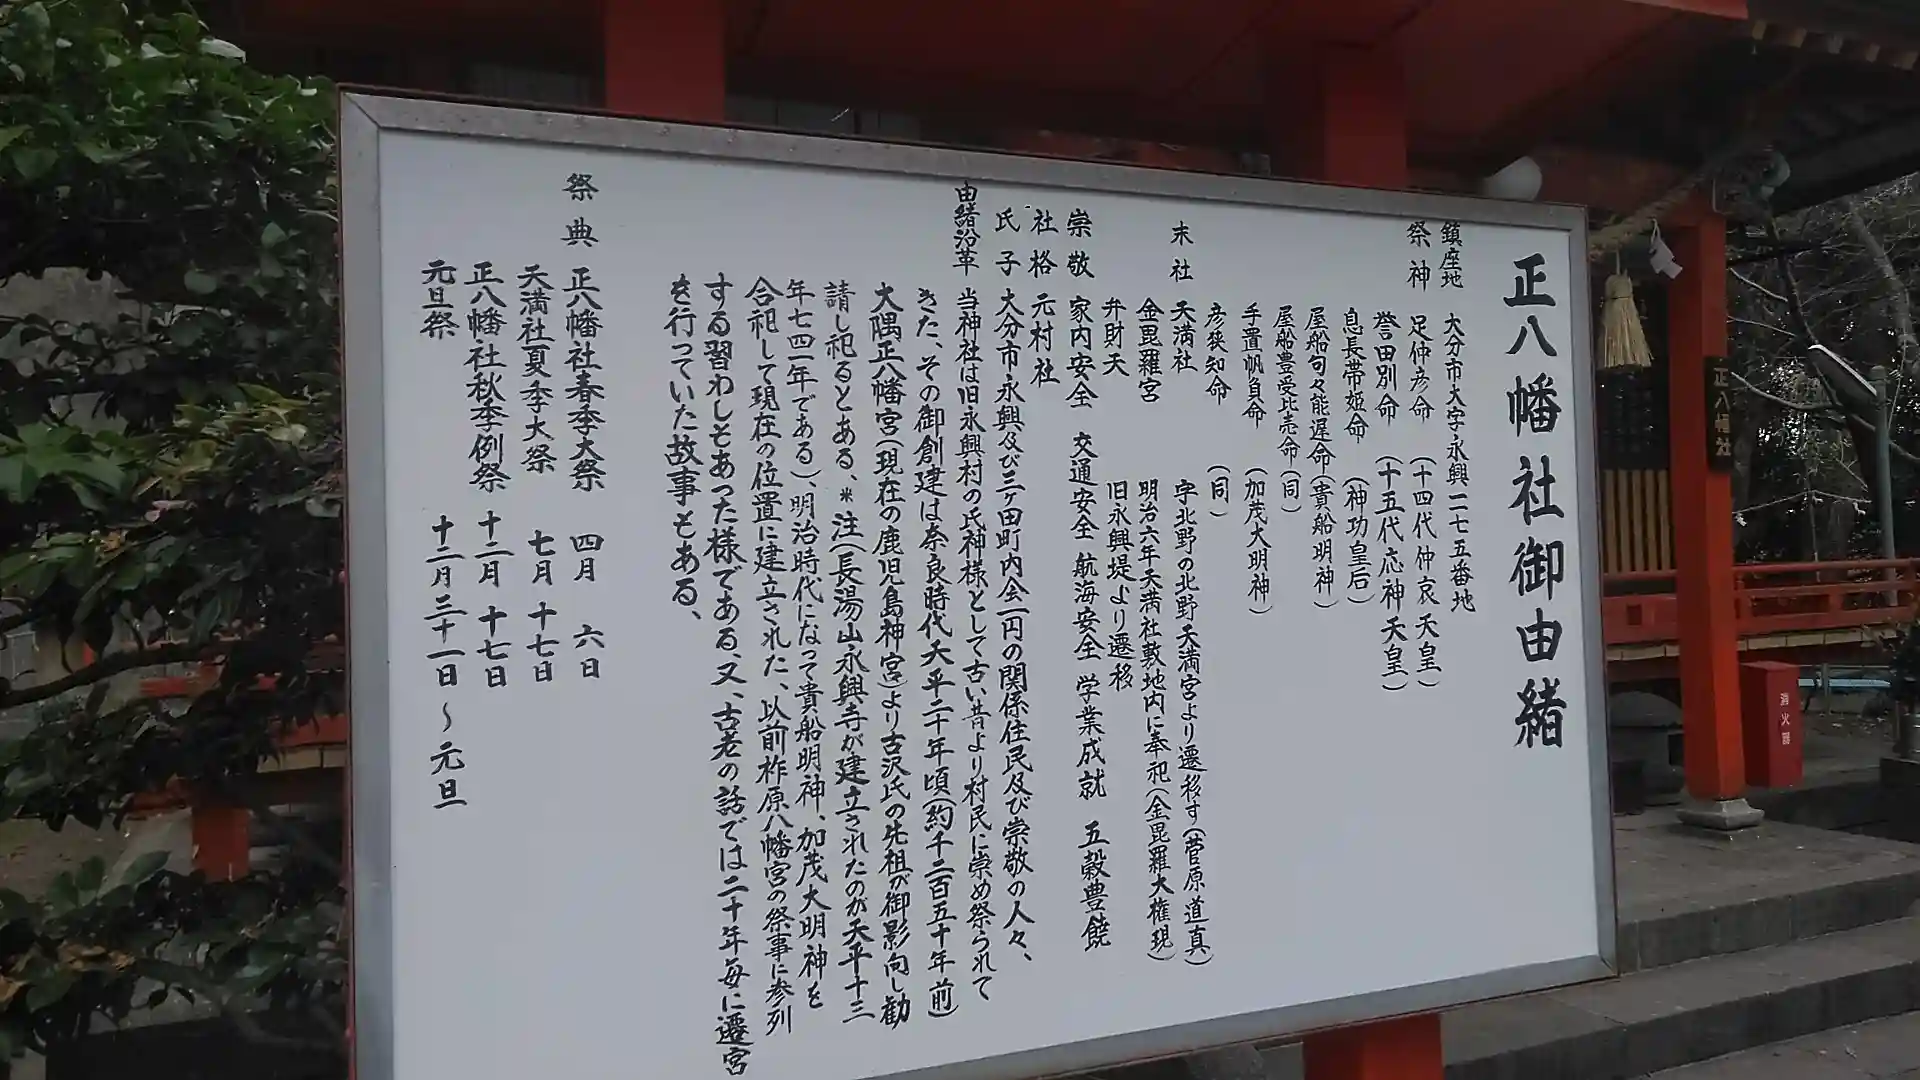 正八幡社御由緒
鎮座地 大分市大字永興一二七五番地
祭神 足仲彦命（十四代仲哀天皇）
誉田別命（十五代応神天皇）
息長帯姫命（神功皇后）
屋船句々能遅命（貴船明神）
屋船豊受比売命（同）
手置帆負命（加茂大明神）
彦狭知命（同）
末社 天満社 字北野の北野天満宮より遷移す（菅原道真）
金毘羅宮 明治六年天満社敷地内に奉祀（金毘羅大権現）
弁財天 旧永興堤より遷移
崇敬 家内安全 交通安全 航海安全 学業成就 五穀豊饒
社格 元村社
氏子 大分市永興及び三ヶ田町内会一円の関係住民及び崇敬の人々、
由緒沿革 当神社は旧永興村の氏神様として古い昔より村民に崇め祭られて
きた、その御創建は奈良時代天平二十年頃（約千二百五十年前）
大隅正八幡宮（現在の鹿児島神宮）より古沢氏の先祖が御影向し勧
請し祀るとある、※注（長湯山永興寺が建立されたのが天平十三
年七四一年である）、明治時代になって貴船明神、加茂大明神を
合祀して現在の位置に建立された、以前柞原八幡宮の祭事に参列
する習わしもあった様である、又、古老の話では二十年毎に遷宮
を行っていた故事もある、
祭典 正八幡社春季大祭 四月 六日
天満社夏季大祭 七月十七日
正八幡社秋季例祭 十二月十七日
元旦祭 十二月三十一日～元旦
正八幡社
消火器